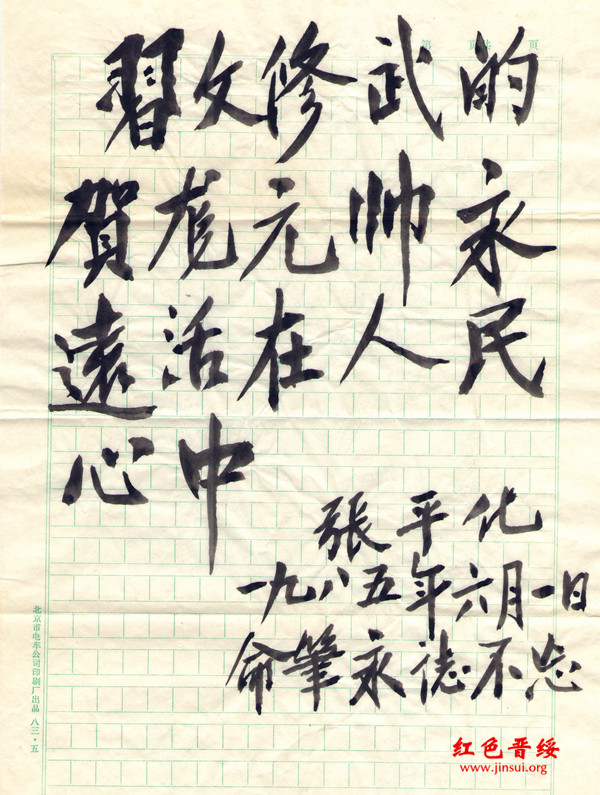 第 页 共 页
習文修武的
賀龙元帅永
遠活在人民
心中
張平化
一九八五年六月一日
命筆永誌不忘
北京市电车公司印刷厂出品 八三·五
红色晋绥
www.jinsui.org